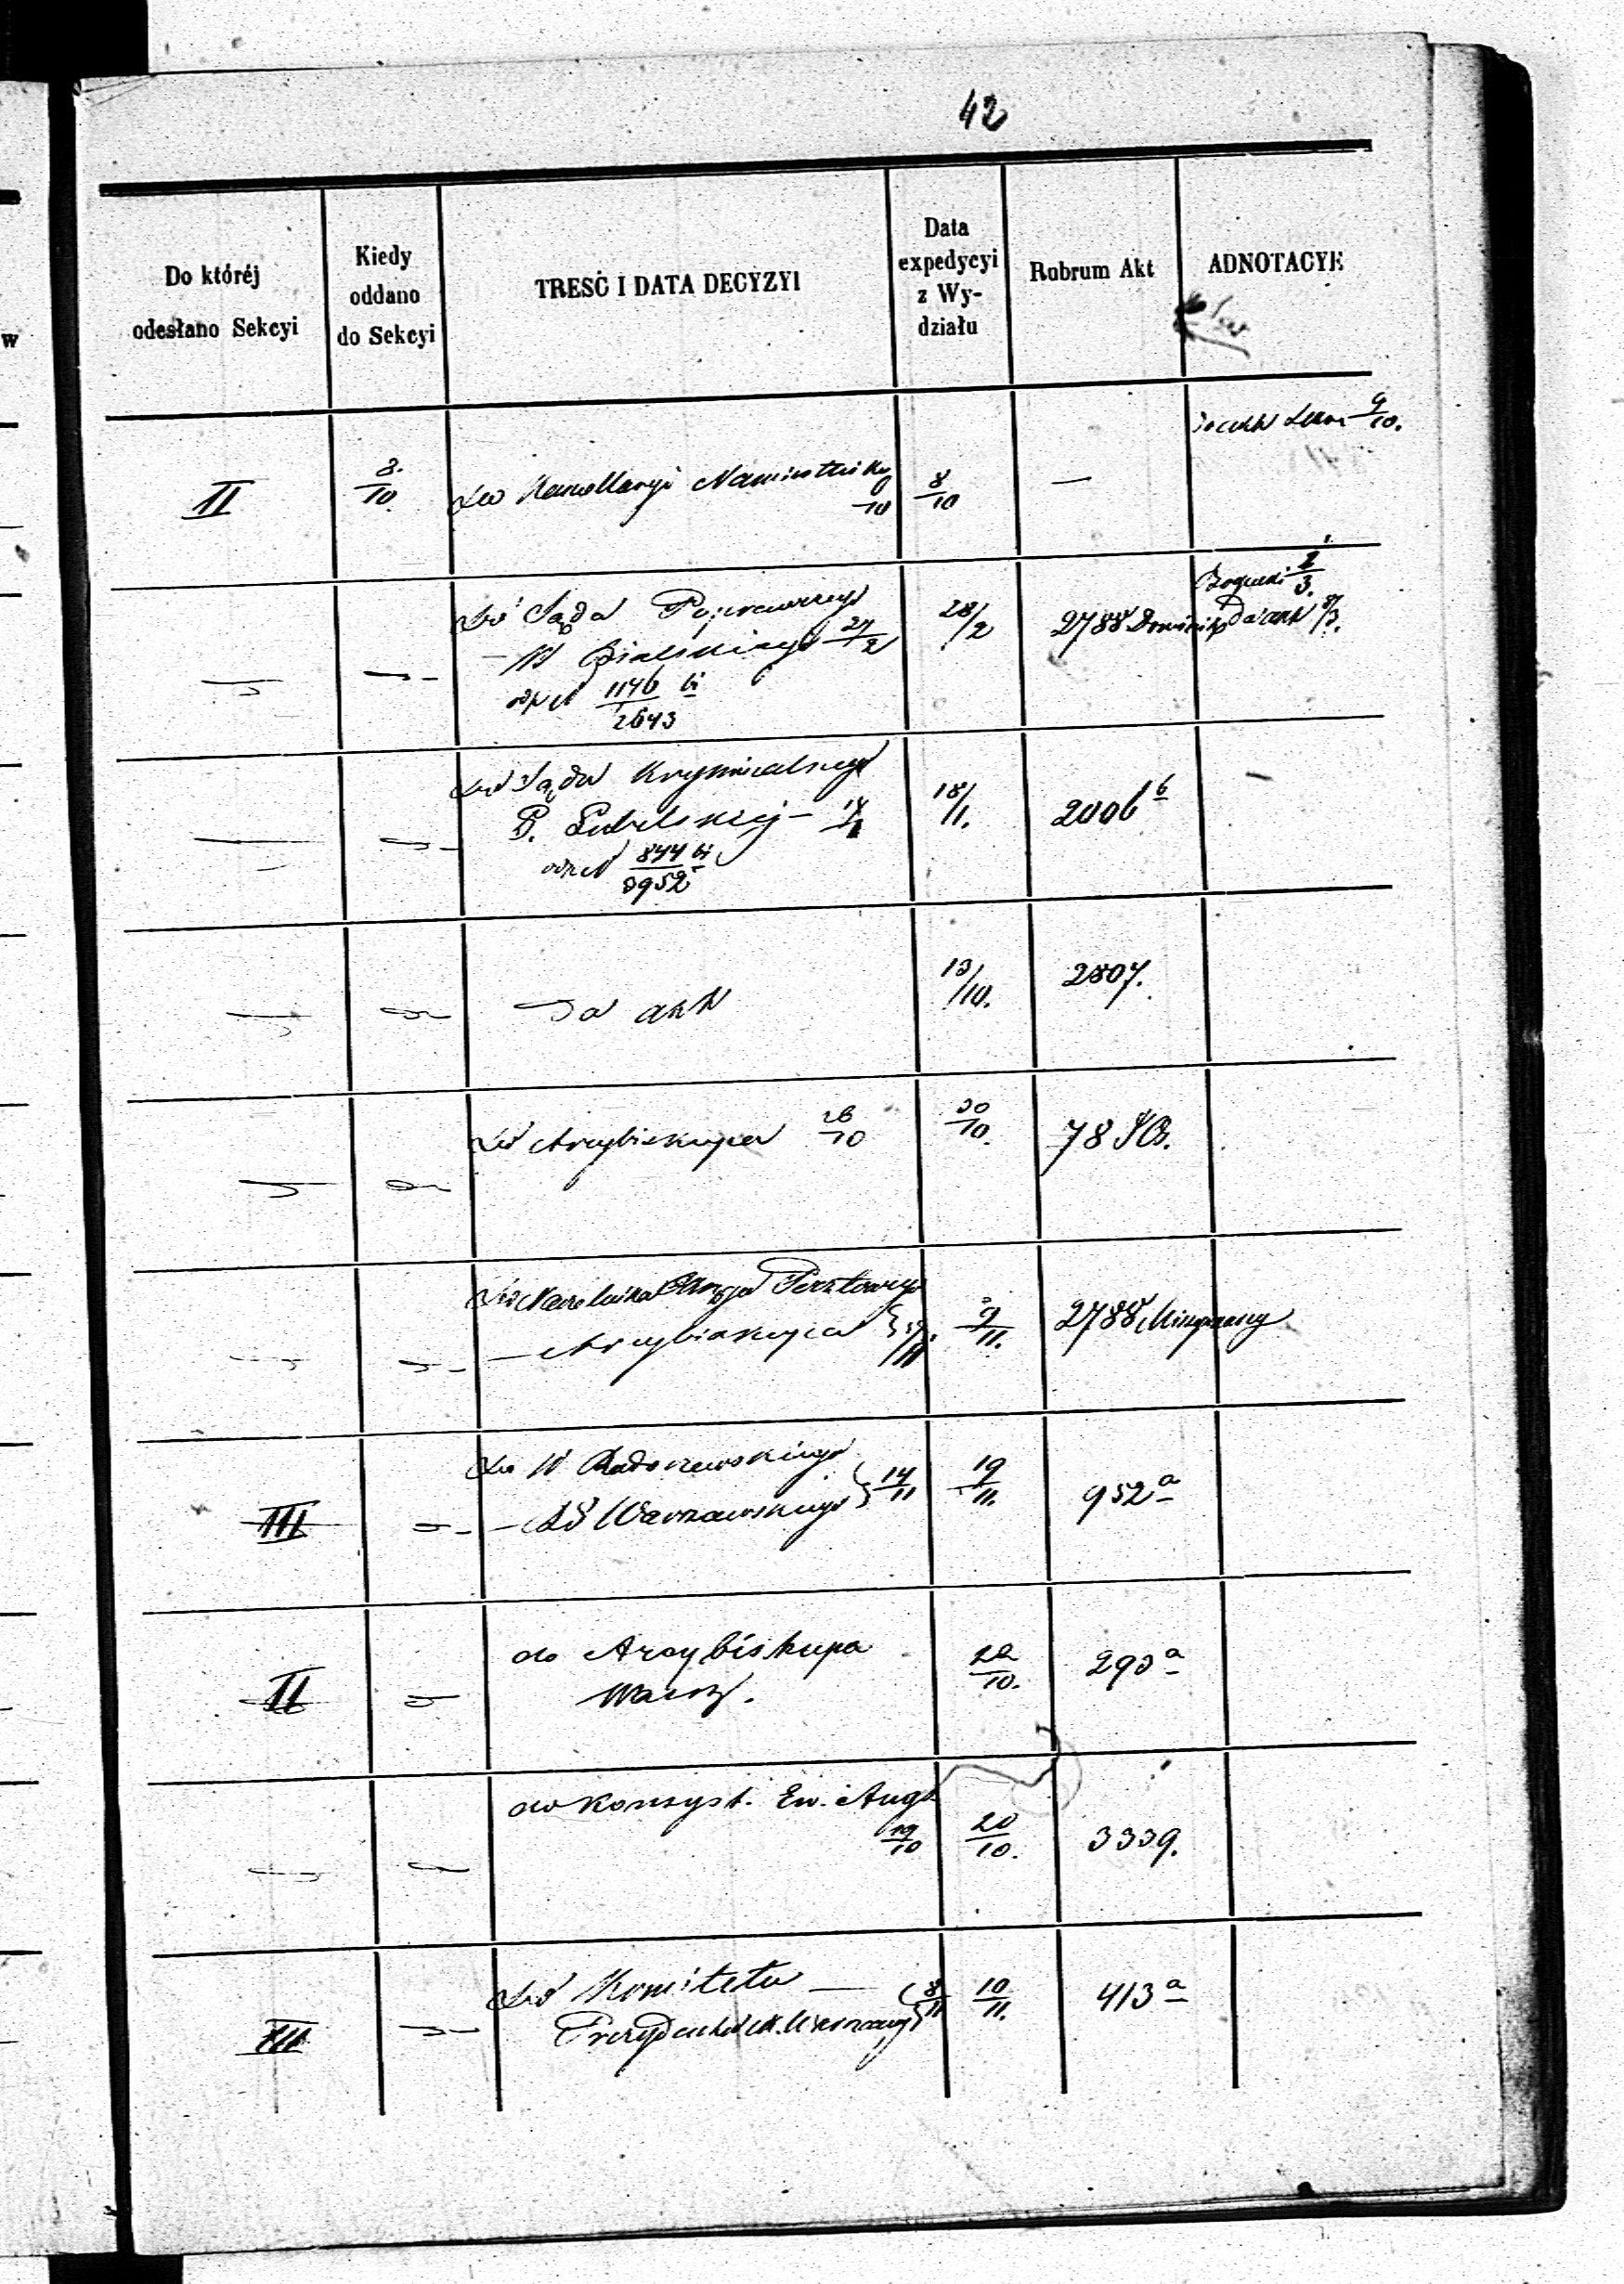 42
Do któréj
odesłano Sekcyi
Kiedy
oddano
do Sekcyi
TREŚĆ I DATA DECYZYI
Data
expedycyi
z Wy-
działu
Rubrum Akt
ADNOTACYE
w
9/10.
II
8/10
Do Kancellaryi Namiestnika
/10
8/10
—
Do Sądu Poprawczego
— W Bialskiego 27/2
odp N 1146/2643
28/2
2788 Dominik
Bogucki 1/3.
Do akt 8/3.
Do Sądu Kryminalnego
P. Lubelskiej —
odp N 844/3952
18/11.
2006 b
—
Do akt
13/10.
2807.
Do Arcybiskupa 26/10
30/10.
78
Do Naczelnika Okręgu Pocztowego
— Arcybiskupa
9/11.
2788
Do W Radoszewskiego
— Warszawskiego 14/11
III
19/11.
952 a
II
do Arcybiskupa
Warsz.
22/10.
293 a
do Konsyst. Ew. Augs.
19/10
20/10.
3339.
III
Do Komitetu —
Prezydenta M. Warszawy 8/11
10/11.
413 a